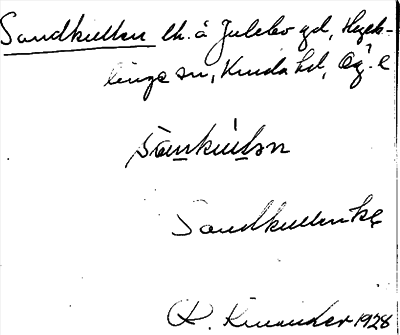 Sandkullen lh. å Julebo gd, Hyck-
linge sn, Kinda hd, Ög. l
Sandkullen kę
K. Kinander 1928